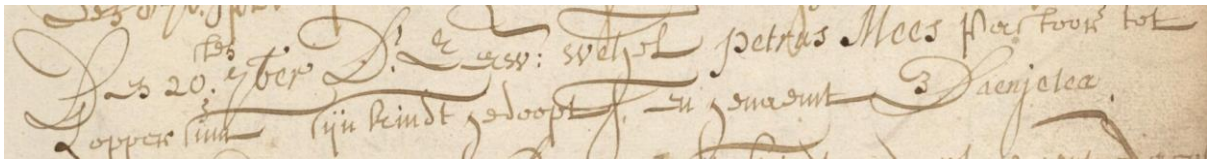 Den 20.sten 7ber D: E Erw: wetzel petrus Mees Pastoor tot
Loppersum sijn kindt gedoopt, en genaemt Daenjelea.